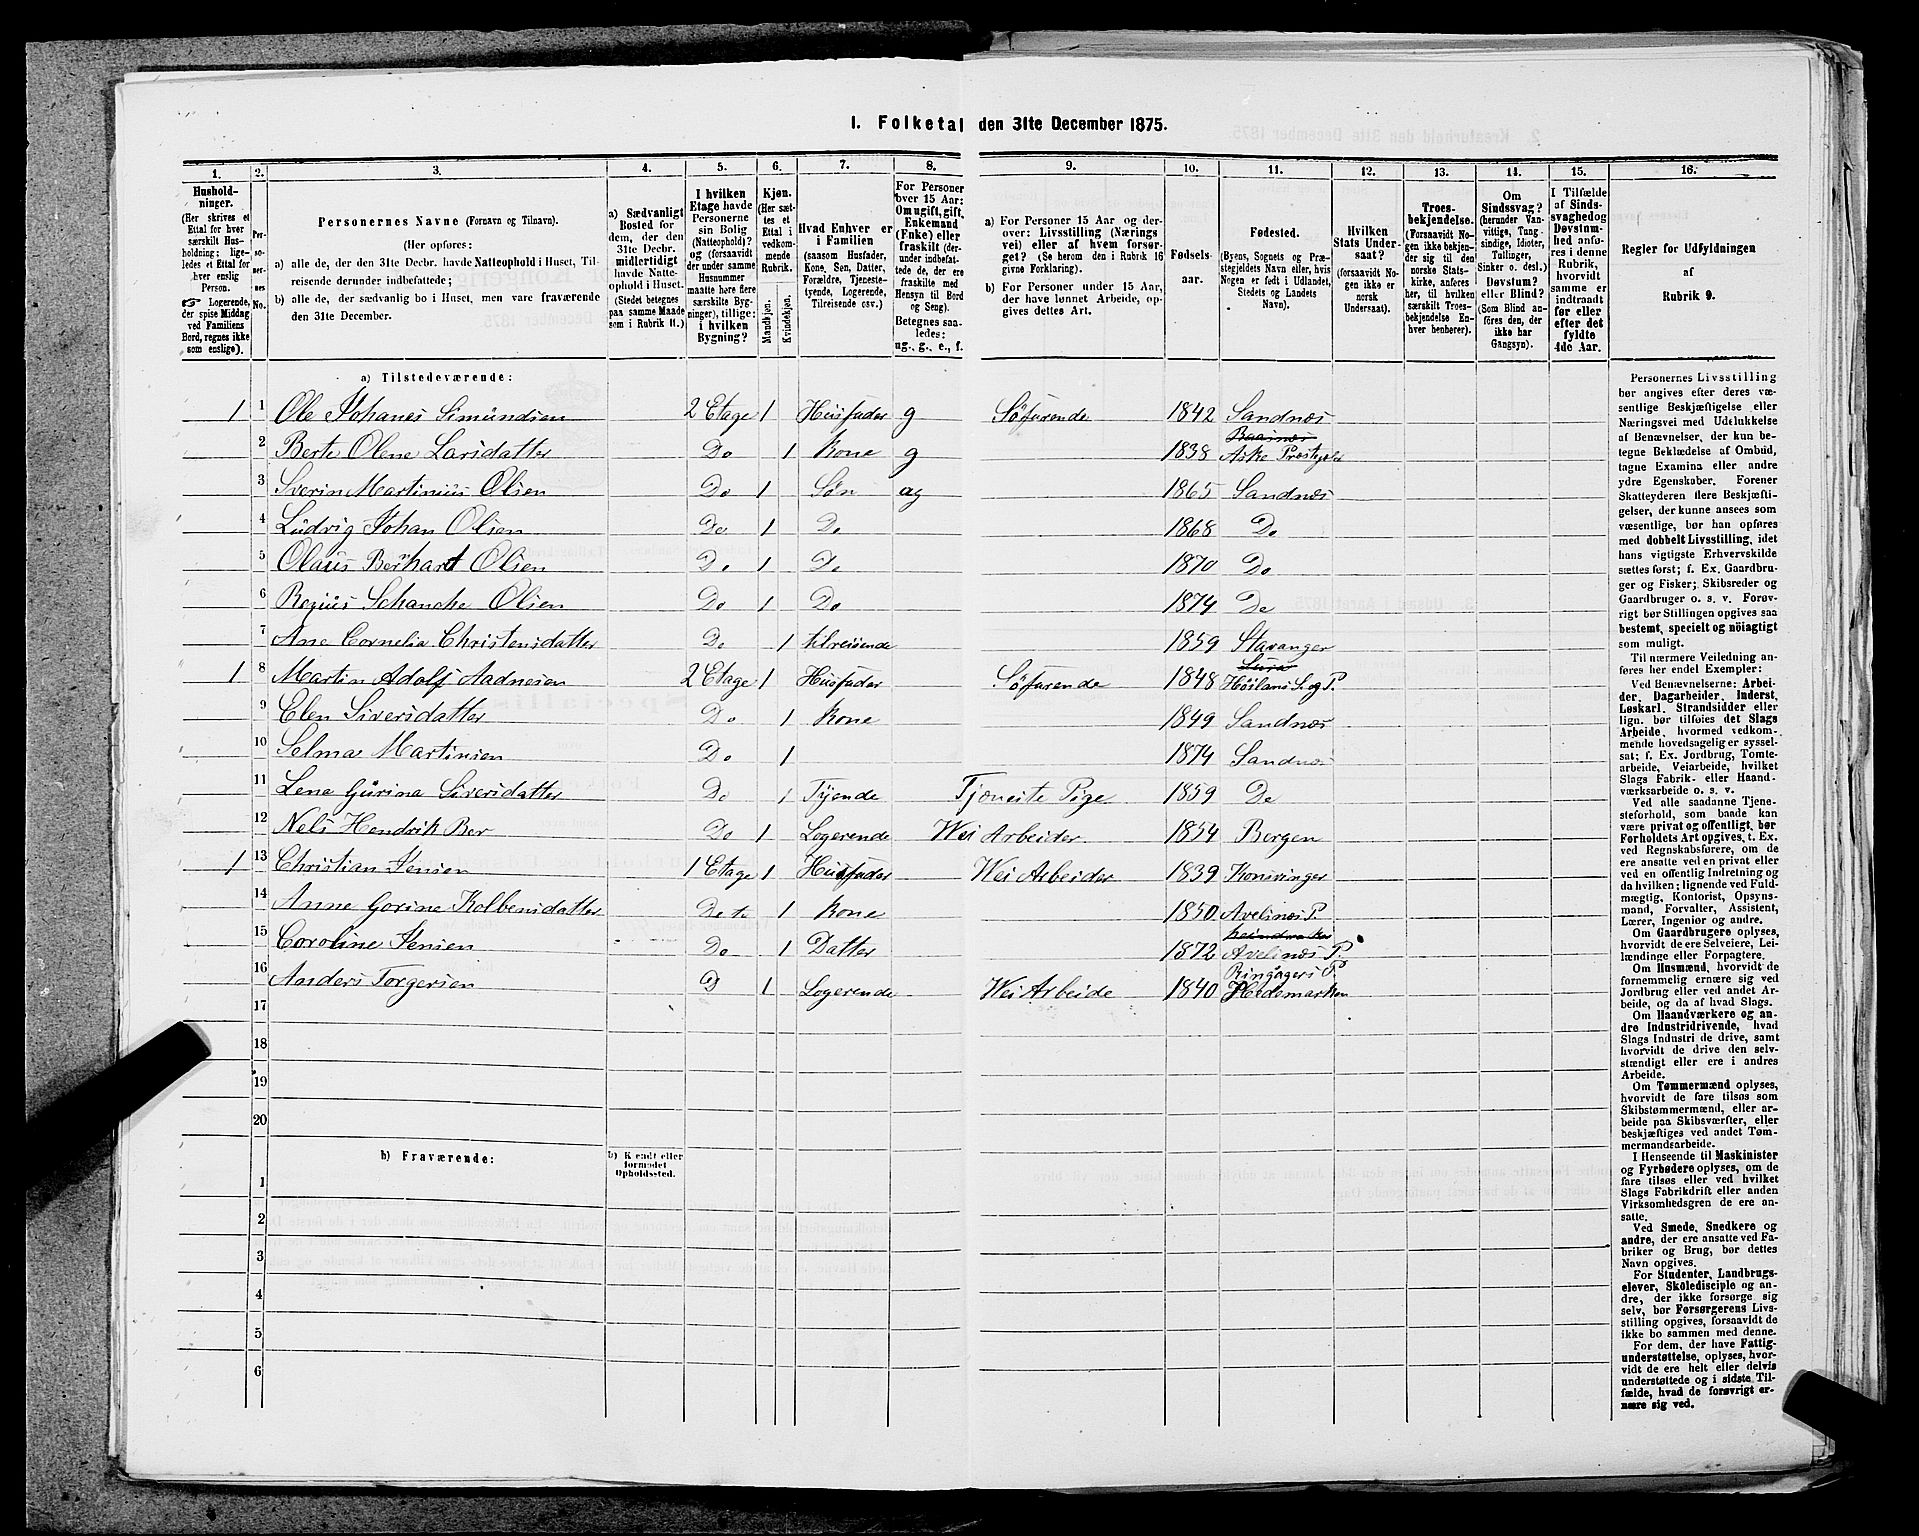 1. Folketal den 31te December 1875.
1.
Hushold-
ninger.
(Her skrives et
Ettal for hver
særskilt Hus-
holdning; lige-
ledes et Ettal for
hver enslig
Person.
☞ Logerende,
der spise Middag
ved Familiens
Bord, regnes ikke
som enslige).
2.
Per-
so-
ner-
nes
No.
3.
Personernes Navne (Fornavn og Tilnavn).
(Her opføres:
a) alle de, der den 31te Decbr. havde Natteophold i Huset, Til-
reisende derunder indbefattede;
b) alle de, der sædvanlig bo i Huset, men vare fraværende
den 31te December.
4.
a) Sædvanligt
Bosted for
dem, der den
31te Decbr.
midlertidigt
havde Natte-
ophold i Huset.
(Stedet betegnes
paa samme Maade
som i Rubrik 11.)
5.
I hvilken
Etage havde
Personerne
sin Bolig
(Natteophold)?
og (forsaavidt
der under samme
Husnummer
maatte høre flere
særskilte Byg-
ninger), tillige:
i hvilken
Bygning?
6.
Kjøn.
(Her sæt-
tes et
Ettal i
vedkom-
mende
Rubrik.
Mandkjøn.
Kvindekjøn.
7.
Hvad Enhver er
i Familien
(saasom Husfader,
Kone, Søn, Datter,
Forældre, Tjeneste-
tyende, Logerende,
Tilreisende osv.)
8.
For Personer
over 15 Aar:
Om ugift, gift,
Enkemand
(Enke) eller
fraskilt (der-
under indbefat-
tede de, der ere
fraskilte med
Hensyn til Bord
og Seng).
Betegnes saa-
ledes:
ug., g., e., f.
9.
a) For Personer 15 Aar og der-
over: Livsstilling (Nærings
vei) eller af hvem forsør-
get? (Se herom den i Rubrik 16
givne Forklaring).
b) For Personer under 15 Aar,
der have lønnet Arbeide, op-
gives dettes Art.
10.
Fødsels-
aar.
11.
Fødested.
(Byens, Sognets og Præ-
stegjeldets Navn eller, hvis
Nogen er født i Udlandet,
Stedets og Landets
Navn).
12.
Hvilken
Stats Under-
saat?
(forsaavidt No-
gen ikke er
norsk
Undersaat).
13.
Troes-
bekjendelse.
(Forsaavidt No-
gen ikke bekjen-
der sig til den
norske Stats-
kirke, anføres
her, til hvilken
særskilt Troes-
bekjendelse En-
hver henhører).
14.
Om
Sindssvag?
(herunder Van-
vittige, Tung-
sindige, Idioter,
Tullinger,
Sinker o. desl.)
Døvstum?
eller Blind?
(Som Blind an-
føres den, der
ikke har
Gangsyn).
15.
I Tilfælde
af Sinds-
svaghed og
Døvstum-
hed anfø-
res i denne
Rubrik,
hvorvidt
samme er
indtraadt
før eller
efter det
fyldte
4de Aar.
16.
Regler for Udfyldningen
af
Rubrik 9.
a) Tilstedeværende:
1 1 Ole Johanes Simundsen 2 Etage 1 Husfader g Søfarende 1842 Sandnæs
2 Berte Olene Larsdatter Do 1 Kone g 1838 Aske Præstegjeld
3 Sverin Martinius Olsen Do 1 Søn ug 1865 Sandnæs
4 Ludvig Johan Olsen Do 1 Do 1868 Do
5 Olaus Berhart Olsen Do 1 Do 1870 Do
6 Regius Schanche Olsen Do 1 Do 1874 Do
7 Ane Cornelia Christensdatter Do 1 tilreisende 1859 Stavanger
1 8 Martin Adolf Aadnesen 2 Etage 1 Husfader Søfarende 1848 Høilans S. og P.
9 Elen Siversdatter Do 1 Kone 1849 Sandnæs
10 Selma Martinsen Do 1 1874 Sandnæs
11 Lena Gurina Siversdatter Do 1 Tyende Tjeneste Pige 1859 Do
12 Nels Hendrik Ber Do 1 Logerende Wei Arbeider 1854 Bergen
1 13 Christian Jensen 1 Etage 1 Husfader Wei Arbeider 1839 Konsvinger
14 Anne Gorine Kolbensdatter Do 1 Kone 1850 Avelsnæs P.
15 Coroline Jensen Do 1 Datter 1872 Avelsnæs P.
16 Anders Torgersen D 1 Logerende Wei Arbeide 1840 Ringsagers P. Hedemarken
17
18
19
20
b) Fraværende:
b) Kjendt eller
formodet
Opholdssted.
1
2
3
4
5
6
Personernes Livsstilling
bør angives efter deres væ-
sentlige Beskjæftigelse eller
Næringsvei med Udelukkelse
af Benævnelser, der kun be-
tegne Beklædelse af Ombud,
tagne Examina eller andre
ydre Egenskaber. Forener
Skatteyderen flere Beskjæfti-
gelser, der kunne ansees som
væsentlige, bør han opføres
med dobbelt Livsstilling, idet
hans vigtigste Erhvervskilde
sættes først; f. Ex. Gaardbru-
ger og Fisker; Skibsreder og
Gaardbruger o. s. v. Forøv-
rigt bør Stillingen opgives saa
bestemt, specielt og nöiagtigt
som muligt.
Til nærmere Veiledning an-
føres her endel Exempler:
Ved Benævnelserne: Arbei-
der, Dagarbeider, Inderst,
Løskarl, Strandsidder eller
lign. bør tilføies det Slags
Arbeide, hvormed vedkom-
mende hovedsagelig er syssel-
sat; f. Ex. Jordbrug, Tomte-
arbeide, Veiarbeide, hvilket
Slags Fabrik- eller Haand-
værksarbeide o. s. v.
Ved alle saadanne Tjene-
steforhold, som baade kan
være privat og offentligt, bør
Forholdets Art opgives, t. Ex.
ved Regnskabsførere, om de
ere ansatte ved en privat eller
ved en offentlig Indretning og
da hvilken; lignende ved Fuld-
mægtig, Kontorist, Opsyns-
mand, Forvalter, Assistent,
Lærer, Ingeniør og andre.
Om Gaardbrugere oplyses,
hvorvidt de ere Selveiere, Lei-
lændinge eller Forpagtere.
Om Husmænd, hvorvidt de
fornemmelig ernære sig ved
Jordbrug eller ved andet Ar-
beide, og da af hvad Slags.
Om Haandværkere og an-
dre Industridrivende, hvad
Slags Industri de drive, samt
hvorvidt de drive den selv-
stændigt eller ere i andres
Arbeide.
Om Tømmermænd oplyses,
hvorvidt de fare tilsøs som
Skibstømmermænd, eller ar-
beide paa Skibsværfter, eller
beskjæftiges ved andet Tøm-
mermandsarbeide.
I Henseende til Maskinister
og Fyrbødere oplyses, om de
fare tilsøs eller ved hvilket
Slags Fabrikdrift eller anden
Virksomhedsgren de ere an-
satte.
Ved Smede, Snedkere og
andre, der ere ansatte ved Fa-
briker og Brug, bør dettes
Navn opgives.
For Studenter, Landbrugs-
elever, Skoledisciple og an-
dre, der ikke forsørge sig
selv, bør Forsørgerens Livs-
stilling opgives, forsaavidt de
ikke bo sammen med denne.
For dem, der have Fattig-
understøttelse, oplyses, hvor-
vidt de ere helt eller delvis
understøttede og i sidste Til-
fælde, hvad de forøvrigt er-
nære sig ved.